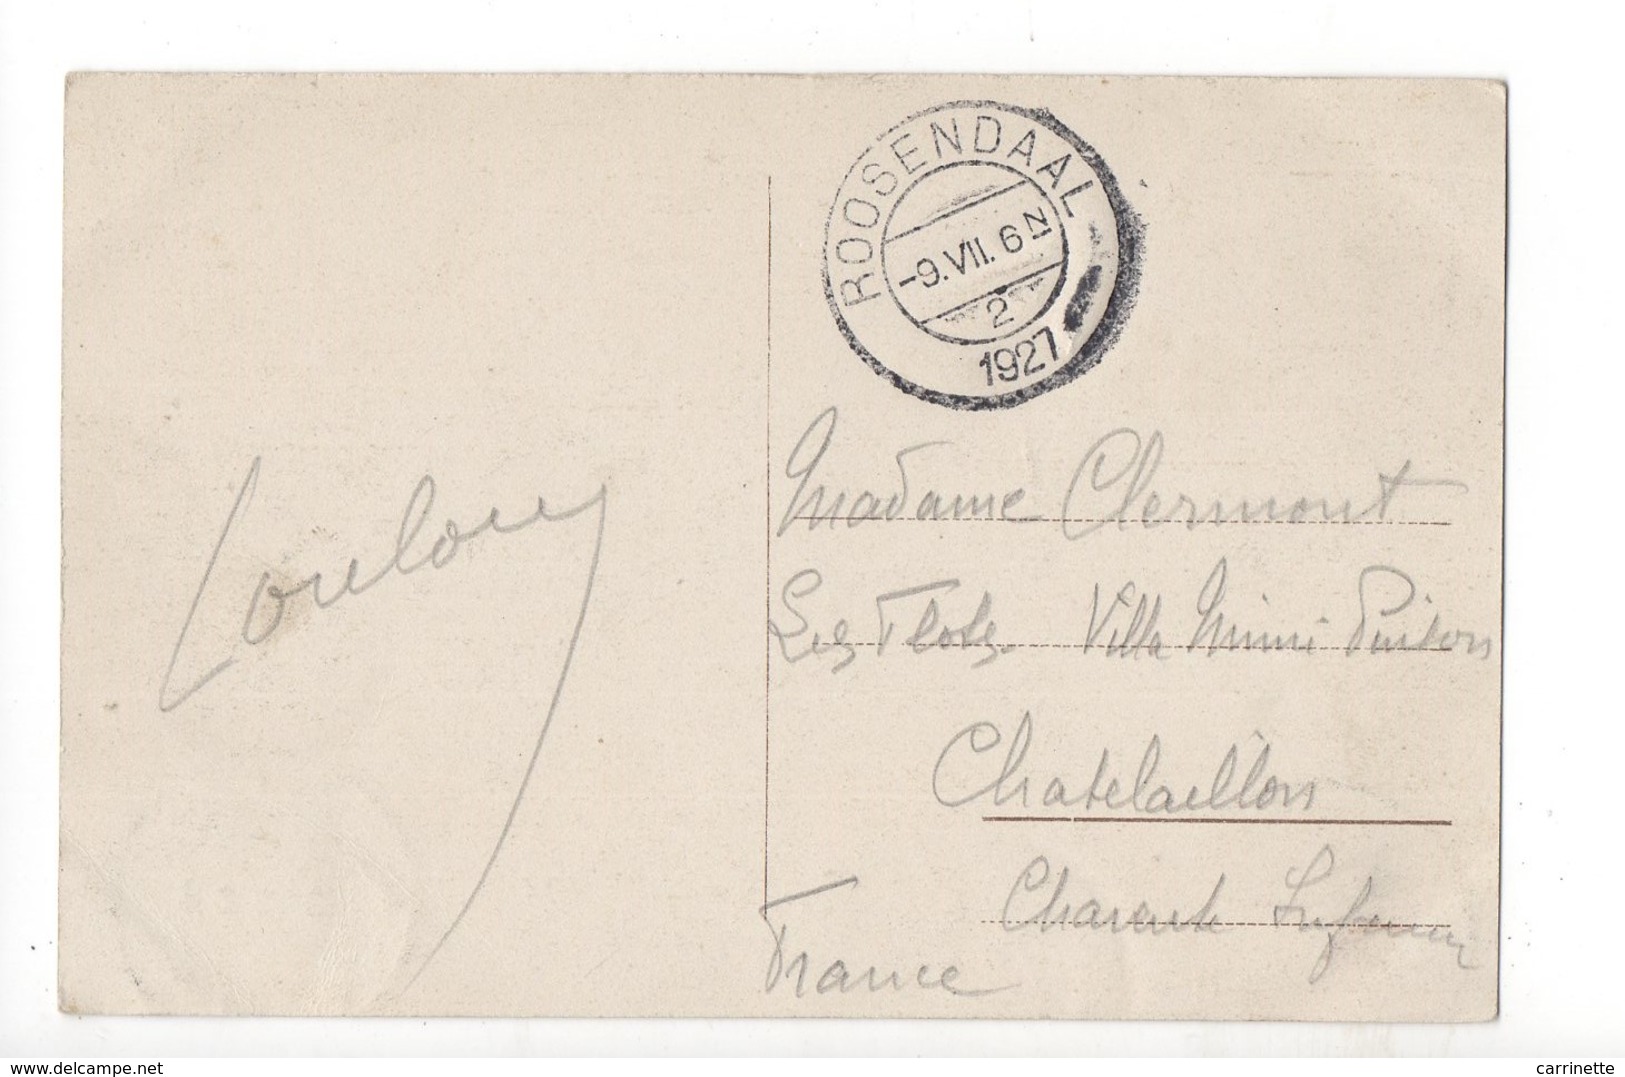 ROOSENDAAL
-9.VII. 6N
2
1927
Loulou
Madame Clermont
Les Flots Villa Mimi
Chatelaillon
Charente Inférieure
France
delcampe.net
carrinette